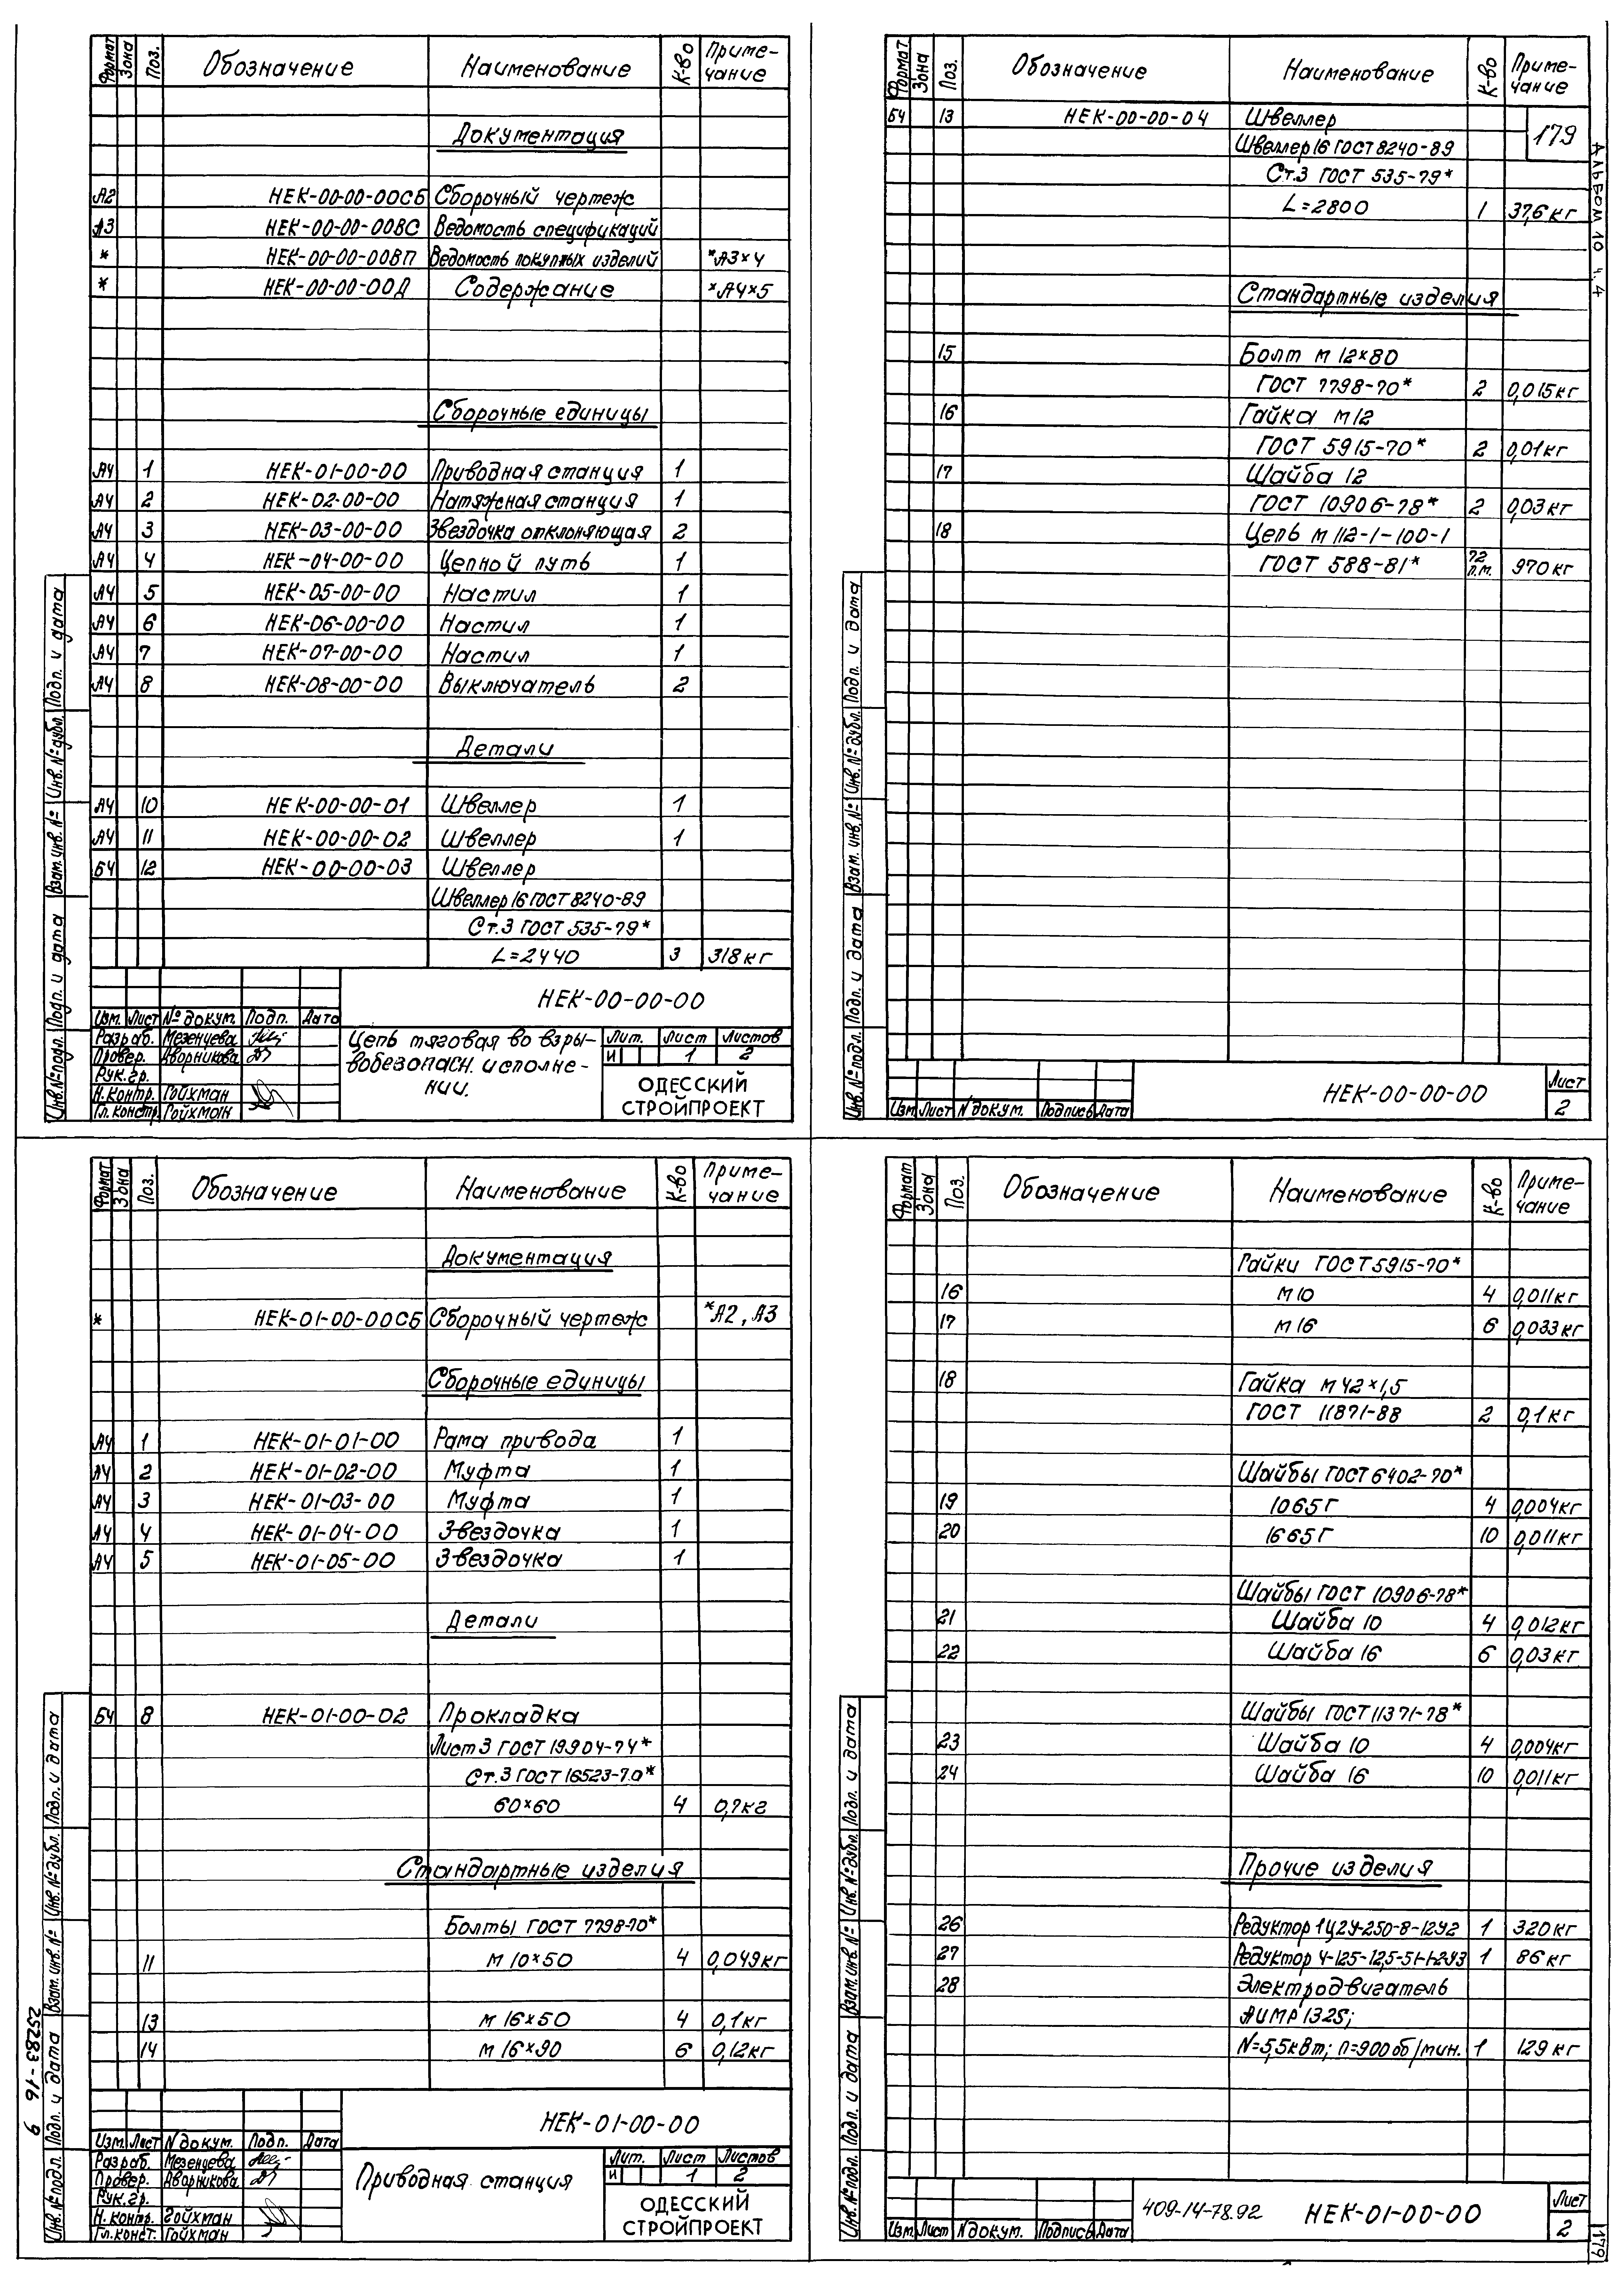 Формат Зона Поз. Обозначение Наименование К-во Приме-чание
Документация
А2 НЕК-00-00-00СБ Сборочный чертеж
А3 НЕК-00-00-00ВС Ведомость спецификаций
* НЕК-00-00-00ВП Ведомость покупных изделий *А3×4
* НЕК-00-00-00Д Содержание *А4×5
Сборочные единицы
А4 1 НЕК-01-00-00 Приводная станция 1
А4 2 НЕК-02-00-00 Натяжная станция 1
А4 3 НЕК-03-00-00 Звездочка отклоняющая 2
А4 4 НЕК-04-00-00 Цепной путь 1
А4 5 НЕК-05-00-00 Настил 1
А4 6 НЕК-06-00-00 Настил 1
А4 7 НЕК-07-00-00 Настил 1
А4 8 НЕК-08-00-00 Выключатель 2
Детали
А4 10 НЕК-00-00-01 Швеллер 1
А4 11 НЕК-00-00-02 Швеллер 1
БЧ 12 НЕК-00-00-03 Швеллер
Швеллер 16 ГОСТ 8240-89
Ст.3 ГОСТ 535-79*
L=2440 3 318кг
НЕК-00-00-00
Изм. Лист № докум. Подп. Дата
Разраб. Мезенцева
Провер. Дворникова
Рук.гр.
Н.контр. Гойхман
Гл.констр. Гойхман
Цепь тяговая во взры-
вобезопасн. исполне-
нии.
Лит. Лист Листов
И 1 2
ОДЕССКИЙ
СТРОЙПРОЕКТ
Инв.№ подл. Подп. и дата Взам. инв. № Инв. № дубл. Подп. и дата
Формат Зона Поз. Обозначение Наименование К-во Приме-чание
БЧ 13 НЕК-00-00-04 Швеллер
179
Швеллер 16 ГОСТ 8240-89
Ст.3 ГОСТ 535-79*
L=2800 1 37,6кг
Стандартные изделия
15 Болт М12×80
ГОСТ 7798-70* 2 0,015кг
16 Гайка М12
ГОСТ 5915-70* 2 0,01кг
17 Шайба 12
ГОСТ 10906-78* 2 0,03кг
18 Цепь М112-1-100-1
ГОСТ 588-81* 72 п.м. 970кг
Альбом 10 ч. 4
НЕК-00-00-00
Лист
2
Изм. Лист № докум. Подпись Дата
Инв.№ подл. Подп. и дата Взам. инв. № Инв. № дубл. Подп. и дата
Формат Зона Поз. Обозначение Наименование К-во Приме-чание
Документация
* НЕК-01-00-00СБ Сборочный чертеж *А2, А3
Сборочные единицы
А4 1 НЕК-01-01-00 Рама привода 1
А4 2 НЕК-01-02-00 Муфта 1
А4 3 НЕК-01-03-00 Муфта 1
А4 4 НЕК-01-04-00 Звездочка 1
А4 5 НЕК-01-05-00 Звездочка 1
Детали
БЧ 8 НЕК-01-00-02 Прокладка
Лист 3 ГОСТ 19904-74*
Ст.3 ГОСТ 16523-70*
60×60 4 0,7кг
Стандартные изделия
Болты ГОСТ 7798-70*
11 М10×50 4 0,049кг
13 М16×50 4 0,1кг
14 М16×90 6 0,12кг
НЕК-01-00-00
Изм. Лист № докум. Подп. Дата
Разраб. Мезенцева
Провер. Дворникова
Рук.гр.
Н.контр. Гойхман
Гл.конст. Гойхман
Приводная станция
Лит. Лист Листов
И 1 2
ОДЕССКИЙ
СТРОЙПРОЕКТ
Инв.№ подл. Подп. и дата Взам. инв. № Инв. № дубл. Подп. и дата
25283-16 9
Формат Зона Поз. Обозначение Наименование К-во Приме-чание
Гайки ГОСТ 5915-70*
16 М10 4 0,011кг
17 М16 6 0,033кг
18 Гайка М42×1,5
ГОСТ 11871-88 2 0,1кг
Шайбы ГОСТ 6402-70*
19 10 65Г 4 0,004кг
20 16 65Г 10 0,011кг
Шайбы ГОСТ 10906-78*
21 Шайба 10 4 0,012кг
22 Шайба 16 6 0,03кг
Шайбы ГОСТ 11371-78*
23 Шайба 10 4 0,004кг
24 Шайба 16 10 0,011кг
Прочие изделия
26 Редуктор 1Ц2У-250-8-12У2 1 320кг
27 Редуктор Ч-125-12,5-51-1-2-У3 1 86кг
28 Электродвигатель
АИМР132S;
N=5,5кВт; n=900 об/мин. 1 129кг
409-14-78.92 НЕК-01-00-00
Лист
2
Изм. Лист № докум. Подпись Дата
Инв.№ подл. Подп. и дата Взам. инв. № Инв. № дубл. Подп. и дата
179